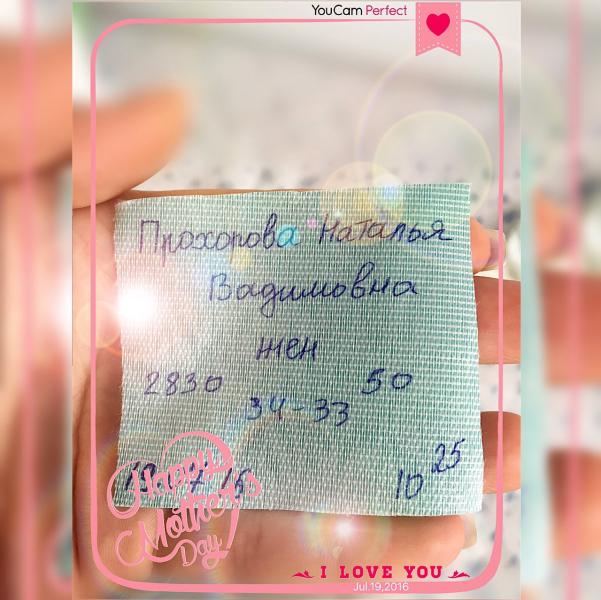 YouCam Perfect
Прохорова Наталья
Вадимовна
жен
2830 50
34-33
10 25
Happy
Mother's
Day
I LOVE YOU
Jul.19,2016